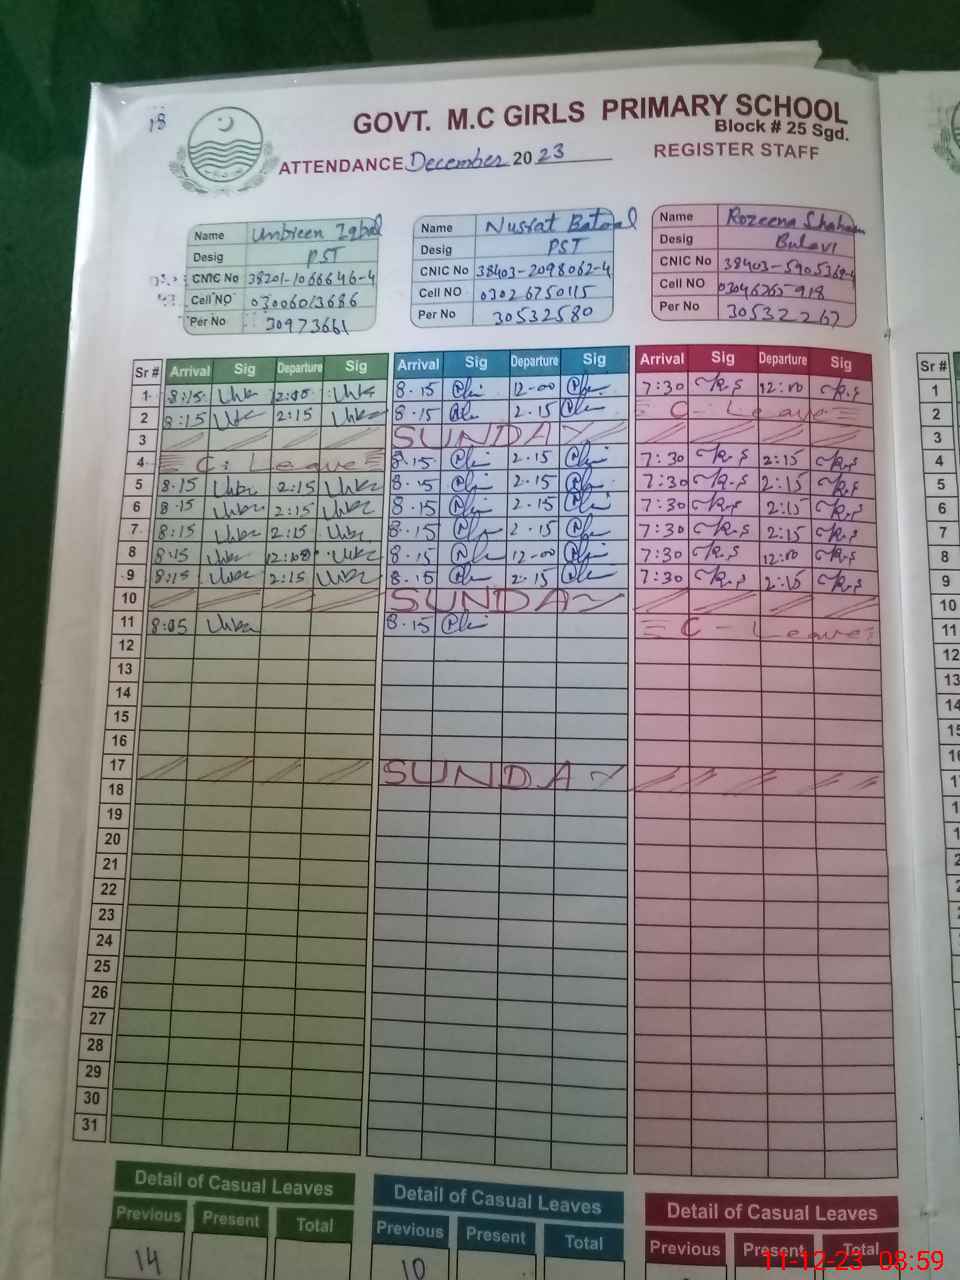 18
GOVT. M.C GIRLS PRIMARY SCHOOL
Block # 25 Sgd.
ATTENDANCE December 2023 REGISTER STAFF
Name Unbreen Iqbal
Desig PST
CNIC No 38201-1066646-4
Cell NO 03006013686
Per No 30973661
Name Nusrat Batool
Desig PST
CNIC No 38403-2098062-4
Cell NO 03026750115
Per No 30532580
Name Rozeena Shaheen
Desig Bulavi
CNIC No 38403-5905368-4
Cell NO 03046765918
Per No 30532267
Sr # Arrival Sig Departure Sig Arrival Sig Departure Sig Arrival Sig Departure Sig Sr #
1 8:15 12:00 8.15 12-00 7:30 12:00 1
2 8:15 2:15 8.15 2.15 C - Leave 2
3 SUNDAY 3
4 C. Leave 8.15 2.15 7:30 2:15 4
5 8.15 2:15 8.15 2.15 7:30 2:15 5
6 8.15 2:15 8.15 2.15 7:30 2:15 6
7 8:15 2:15 8.15 2.15 7:30 2:15 7
8 8:15 12:00 8.15 12-00 7:30 12:00 8
9 8:15 2:15 8.15 2.15 7:30 2:15 9
10 SUNDAY 10
11 8:05 8.15 C - Leave 11
12 12
13 13
14 14
15 15
16 16
17 SUNDAY
18
19
20
21
22
23
24
25
26
27
28
29
30
31
Detail of Casual Leaves
Previous Present Total
14
Detail of Casual Leaves
Previous Present Total
10
Detail of Casual Leaves
Previous Present Total
11-12-23 08:59